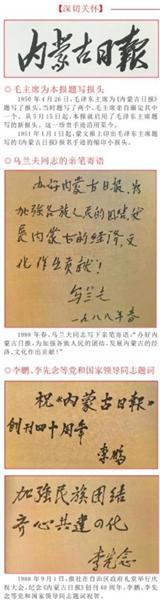 【深切关怀】
内蒙古日报
◎毛主席为本报题写报头
1950年4月26日,毛泽东主席为《内蒙古日报》
题写了报头。当时题写了两个,毛主席亲自圈定其中
一个。从5月15日起,本报就启用了毛泽东主席题写
的新报头。这一珍贵手迹沿用至今。
1951年1月1日起,蒙文报上印出毛泽东主席题
写的《内蒙古日报》报名手迹的缩印小报头。
◎乌兰夫同志的亲笔寄语
办好内蒙古日报,为
加强各族人民的团结,发
展内蒙古的经济、文
化作出贡献!
乌兰夫
一九八八年春
1988年春,乌兰夫同志写下亲笔寄语:“办好内
蒙古日报,为加强各族人民的团结,发展内蒙古的经
济、文化作出贡献!”
◎李鹏、李先念等党和国家领导同志题词
祝《内蒙古日报》
创刊四十周年
李鹏
加强民族团结
齐心共建四化
李先念
1988年9月1日,报社在自治区政府礼堂举行庆
祝大会,纪念《内蒙古日报》创刊40周年。李鹏、李先
念等党和国家领导同志题词祝贺。